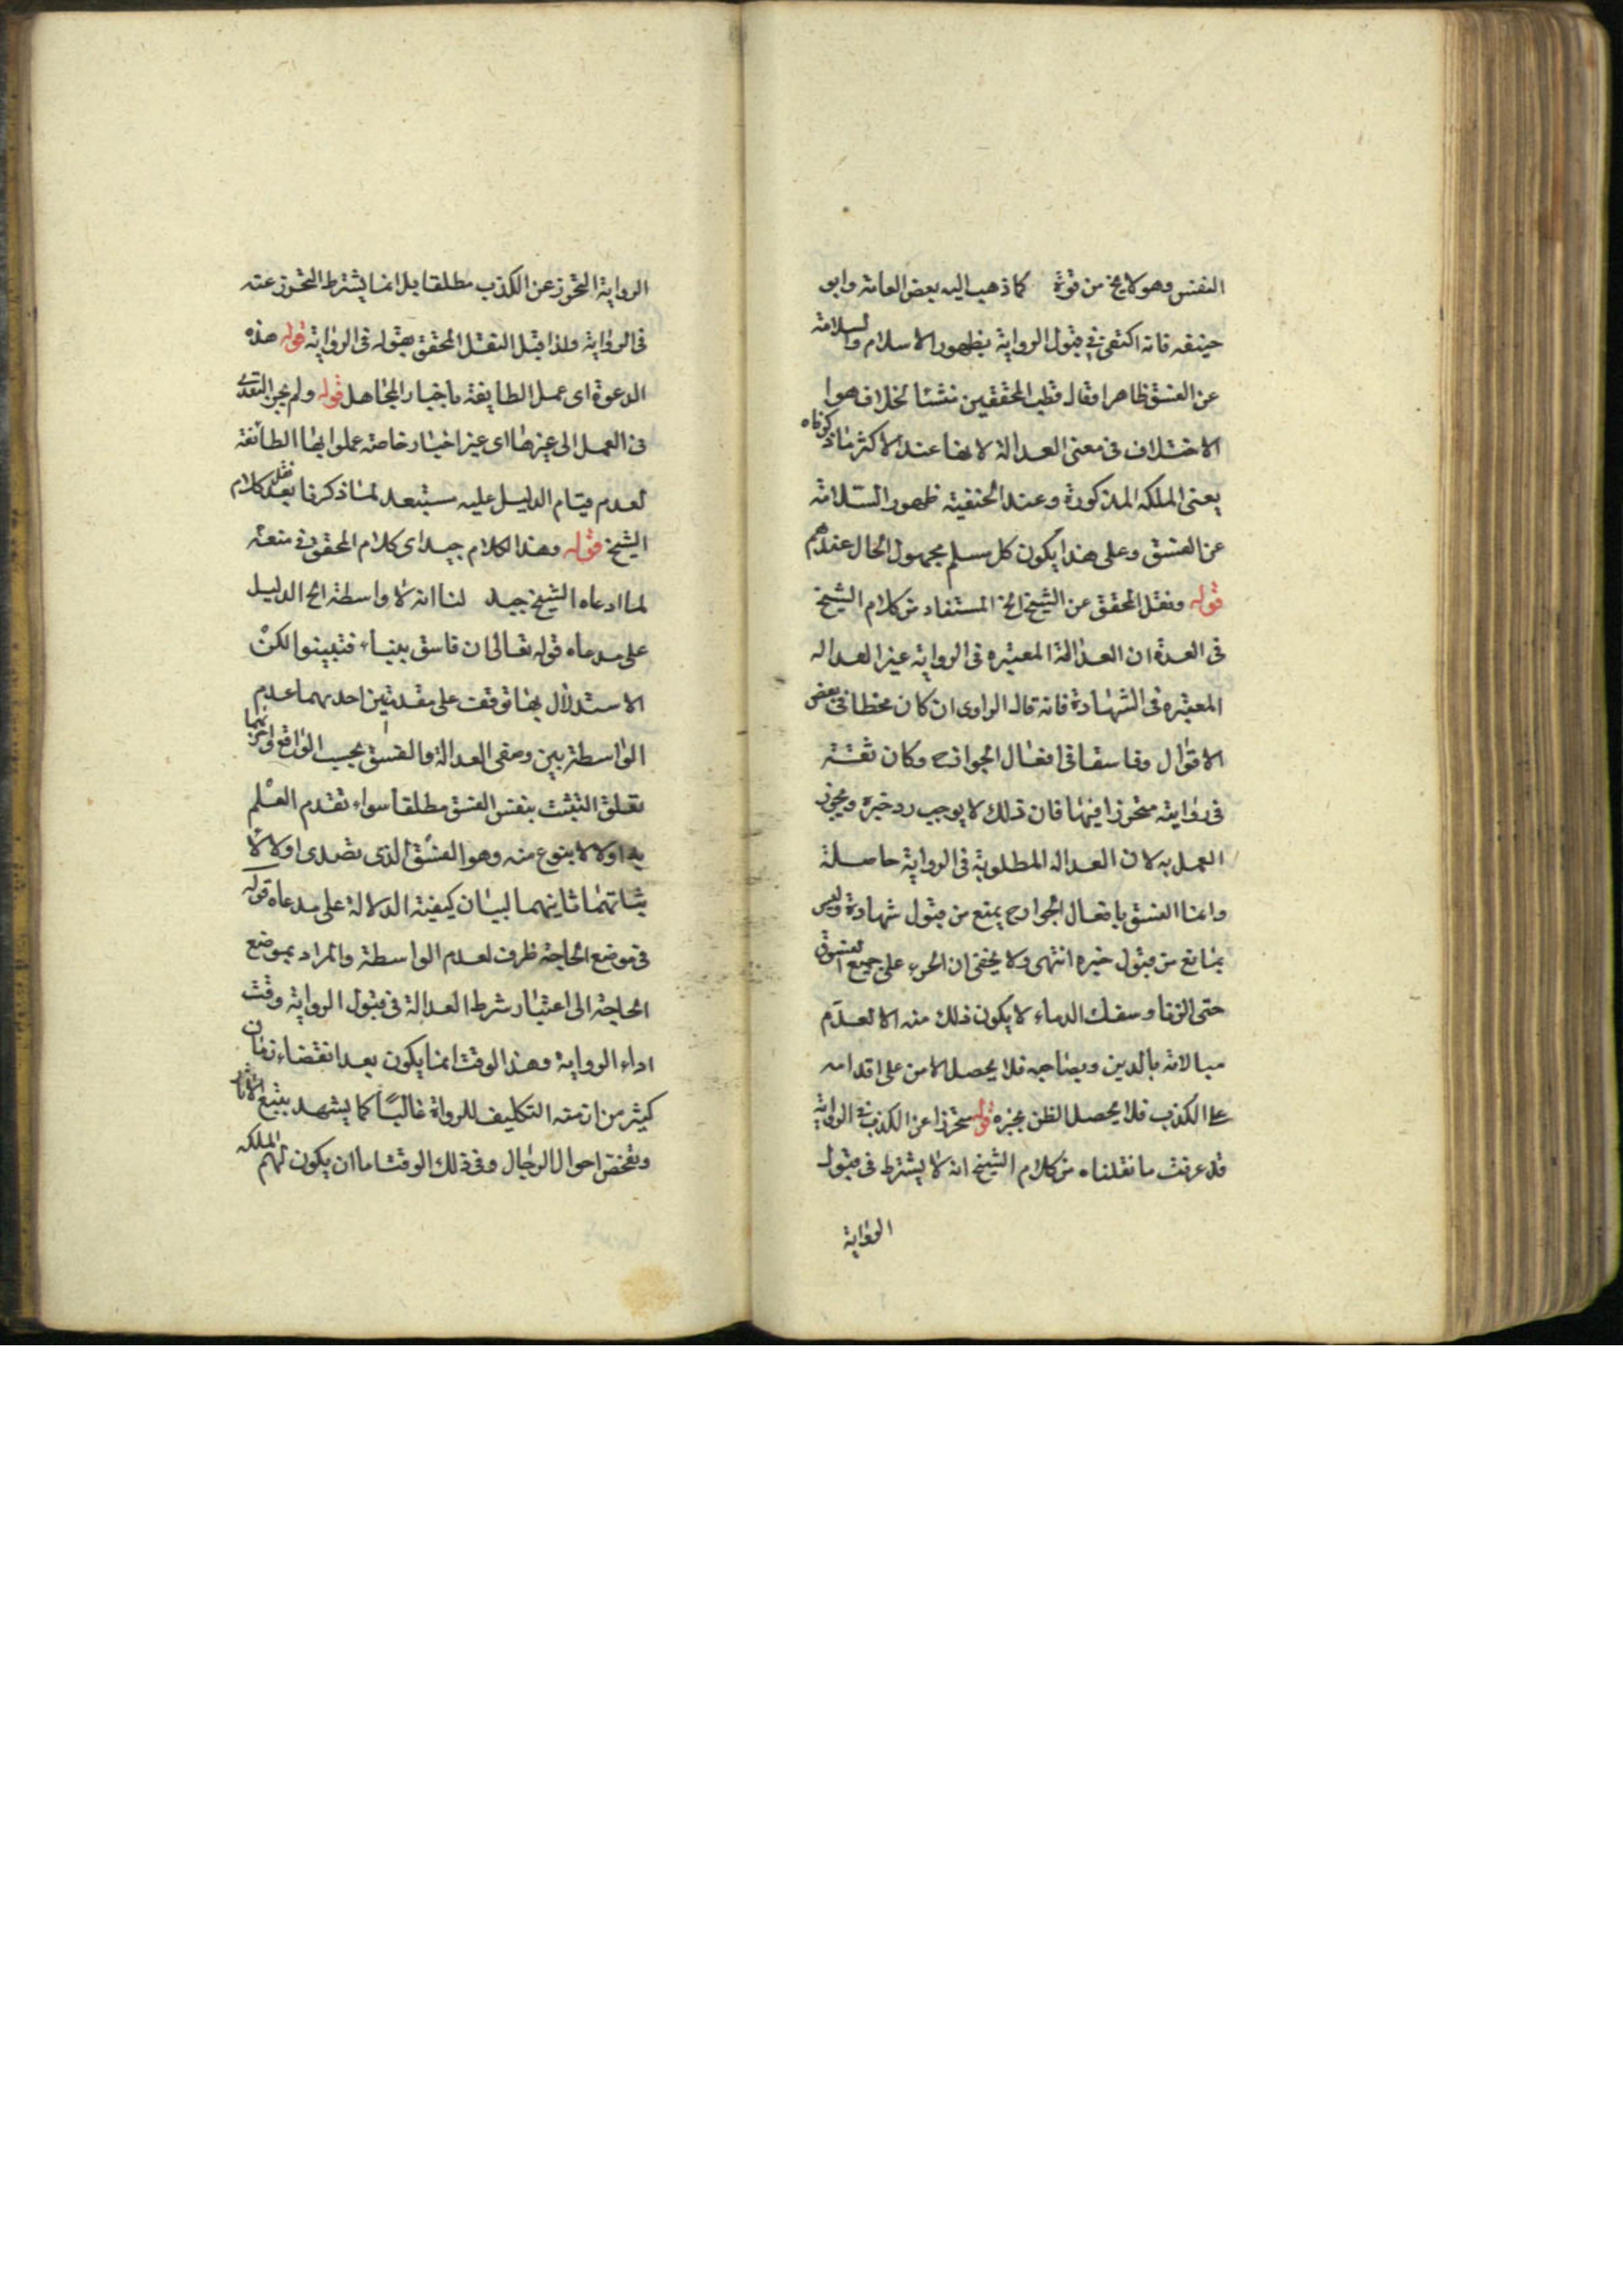 النفس وهو لا يخ من قوة كما ذهب اليه بعض العامة وابو
حنيفه فانه اكتفى في قبول الرواية بظهور الاسلام والسلامة
عن الفسق ظاهرا وقال قطب المحققين منشئا لخلاف هوا
الاختلاف في معنى العدالة لانها عند الاكثر ما ذكرناه
يعنى الملكه المذكورة وعند الحنفية ظهور السلامة
عن الفسق وعلى هذا يكون كل مسلم مجهول الحال عندهم
قوله ونقل المحقق عن الشيخ الخ المستفاد من كلام الشيخ
في العدة ان العدالة المعتبره في الرواية غير العداله
المعتبره في الشهادة فانه قال الراوى ان كان مخطأ في بعض
الاقوال وفاسقا في افعال الجوارح وكان ثقة
في روايته متحرزا فيها فان ذلك لا يوجب رد خبره ويجوز
العمل به لان العداله المطلوبة في الرواية حاصلة
وانما الفسق بافعال الجوارح يمنع من قبول شهادة وليس
بمانع من قبول خبره انتهى ولا يخفى ان الجرء على جميع الفسوق
حتى الزنا وسفك الدماء لا يكون ذلك منه الا لعدم
مبالاته بالدين وبصاحبه فلا يحصل الامن على اقدامه
على الكذب فلا يحصل الظن بخبره قوله متحرزا عن الكذب في الرواية
قد عرفت ما نقلناه من كلام الشيخ انه لا يشترط في قبول
الرواية
الرواية التحرز عن الكذب مطلقا بل انما يشترط التحرز عنه
في الرواية ولذا قبل النقل المحقق بقوله في الرواية قوله هذه
الدعوة اى عمل الطايفة باخبار المجاهل قوله ولم يجز التعدى
في العمل الى غيرها اى غير اخبار خاصة عملوا بها الطائفة
لعدم قيام الدليل عليه ستبعد لما ذكرنا بعد نقل كلام
الشيخ قوله وهذا الكلام جيد اى كلام المحقق في منعه
لما ادعاه الشيخ جيد لنا انه لا واسطة الخ الدليل
على مدعاه قوله تعالى ان فاسق بنباء فتبينوا لكن
الاستدلال بها توقفت على مقدمتين احديهما عدم
الواسطة بين وصفى العدالة والفسق بحسب الواقع واخريهما
تعلق التثبت بنفس الفسق مطلقا سواء تقدم العلم
به او لا لا بنوع منه وهو الفسق الذى تصدى اولا لا
ثباتهما ثانيهما لبيان كيفية الدلالة على مدعاه قوله
في موضع الحاجة ظرف لعدم الواسطة والمراد بموضع
الحاجة الى اعتبار شرط العدالة في قبول الرواية وقت
اداء الرواية وهذا الوقت انما يكون بعد انقضاء زمان
كثير من ازمنه التكليف للرواة غالبا كما يشهد بتتبع الاثار
وتفحص احوال الرجال وفي ذلك الوقت اما ان يكون لهم الملكه